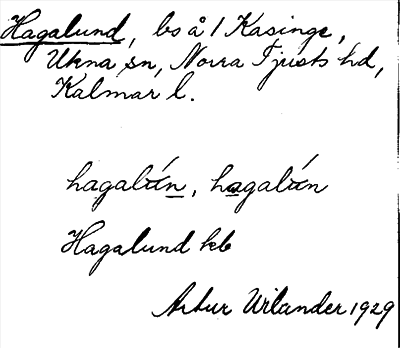 Hagalund, bs å 1 Kasinge,
Ukna sn, Norra Tjusts hd,
Kalmar l.
hagalún, hagalún
Hagalund kb
Artur Wilander 1929